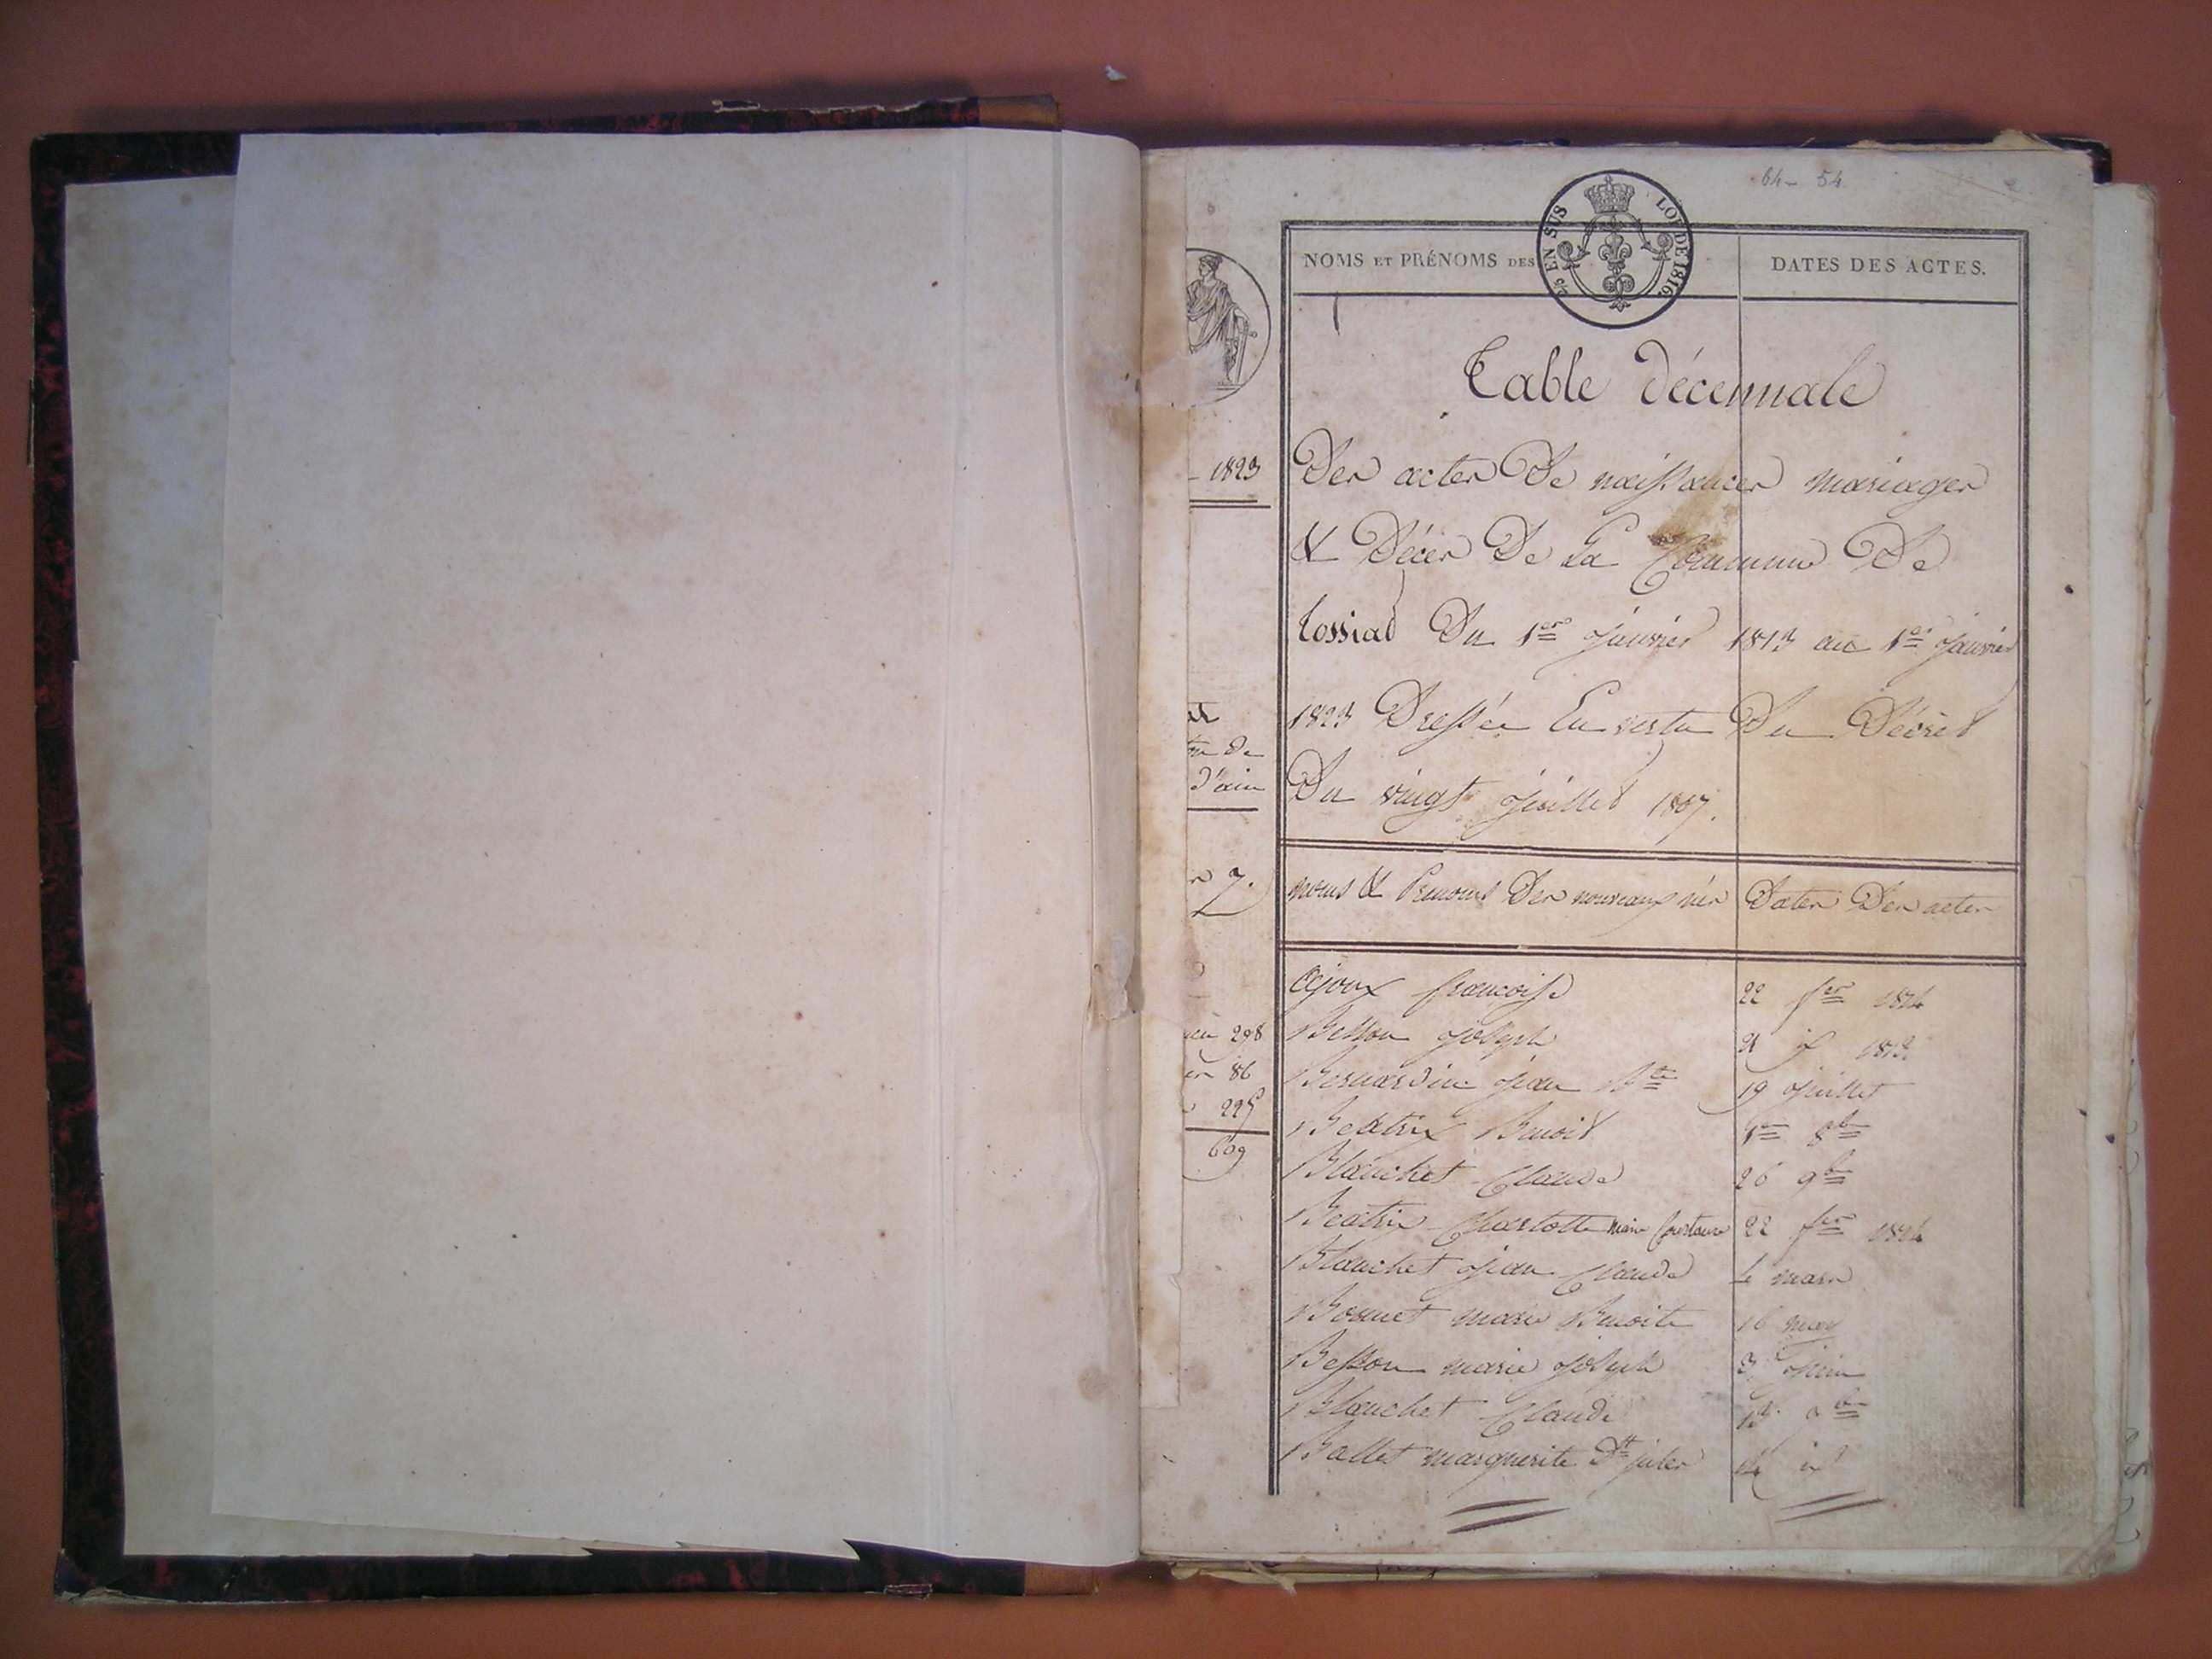 64 - 54
NOMS ET PRÉNOMS DES
DATES DES ACTES.
EN SUS
LOI DE 1816
Table décennale
Des actes De naissances mariages
& Décès De La Commune De
Tossiat Du 1er janvier 1813 au 1er janvier
1823 Dressée En vertu Du Décret
Du vingt juillet 1807.
noms & Prenoms Des nouveaux nés
Dates Des actes
Ajoux françoise
22 fer 1814
Besson joseph
21 1813
Bernardin jean Bte
19 juillet
Beatrix Benoit
1er 8bre
Blanchet Claude
26 9bre
Beatrix Charlotte marie Constance
22 fer 1814
Blanchet jean Claude
4 mars
Bonnet marie Benoite
16 may
Besson marie joseph
3 juin
Blanchet Claude
Ballet marguerite
14 id
1823
de
d'ain
7.
298
86
225
609